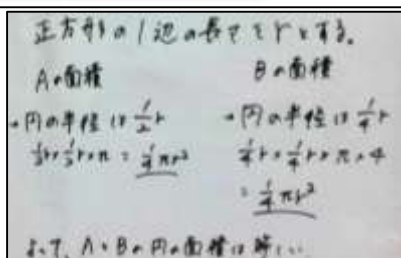 正方形の1辺の長さをrとする。
Aの面積
→円の半径は1/2r
1/2r×1/2r×π=1/4πr²
Bの面積
→円の半径は1/4r
1/4r×1/4r×π×4
=1/4πr²
よって、AとBの円の面積は等しい